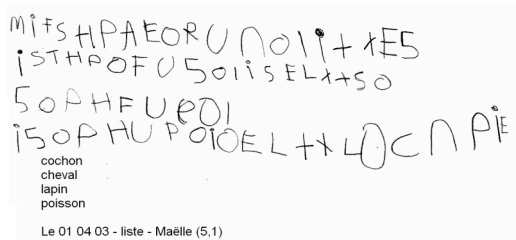 MiFSHPAEORUNOli+xE5
iSTHPOFU5OiiSELX++SO
SOPHFUPOI
i5OPHUPOiOEL+XLOCNPIE
cochon
cheval
lapin
poisson
Le 01 04 03 - liste - Maëlle (5,1)